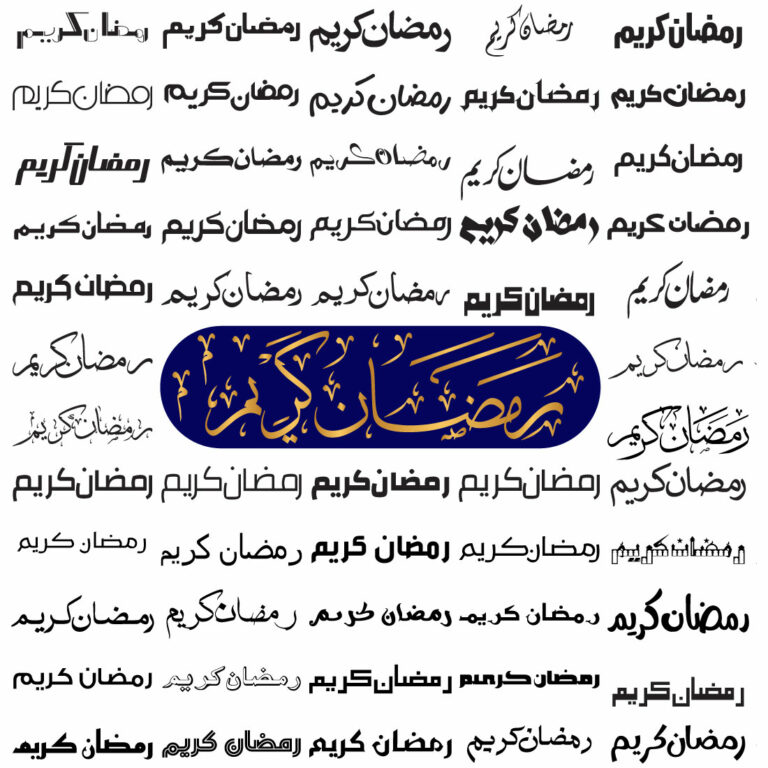 رمضان كريم رمضان كريم رمضان كريم رمضان كريم رمضان كريم
رمضان كريم رمضان كريم رمضان كريم رمضان كريم رمضان كريم
رمضان كريم رمضان كريم رمضان كريم رمضان كريم رمضان كريم
رمضان كريم رمضان كريم رمضان كريم رمضان كريم رمضان كريم
رمضان كريم رمضان كريم رمضان كريم رمضان كريم رمضان كريم
رمضان كريم رَمَضَان كَرِيم رمضان كريم
رَمَضَان كَرِيم رمضان كريم
رمضان كريم رمضان كريم رمضان كريم رمضان كريم رمضان كريم
رمضان كريم رمضان كريم رمضان كريم رمضان كريم رمضان كريم
رمضان كريم رمضان كريم رمضان كريم رمضان كريم رمضان كريم
رمضان كريم رمضان كريم رمضان كريم رمضان كريم رمضان كريم
رمضان كريم رمضان كريم رمضان كريم رمضان كريم رمضان كريم